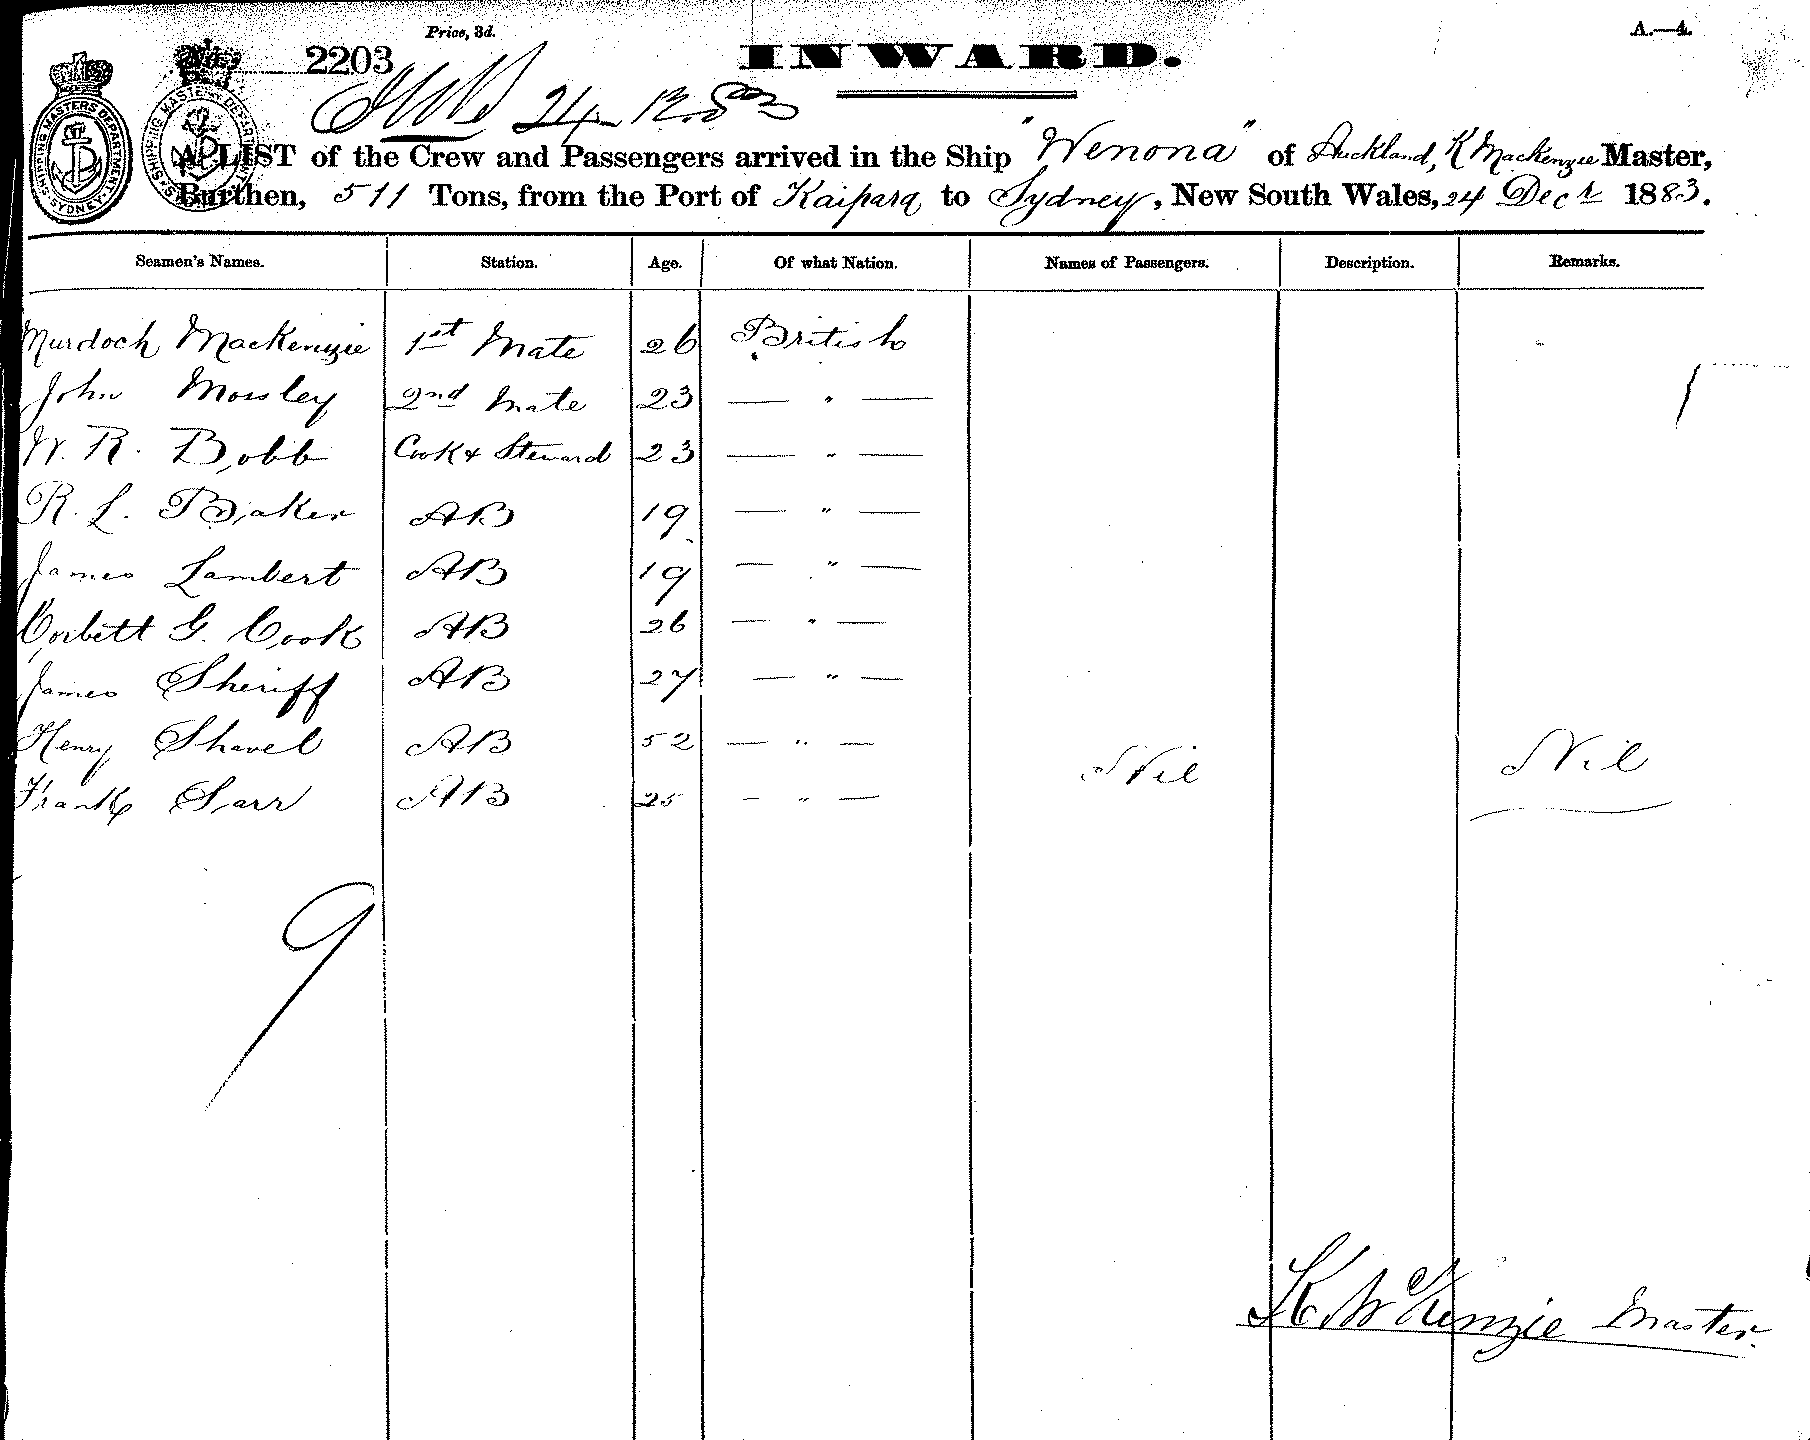 Price, 3d.
A.—4.
2203
INWARD.
24.12.83
SHIPPING MASTERS DEPARTMENT SYDNEY
A LIST of the Crew and Passengers arrived in the Ship "Wenona" of Auckland, K Mackenzie Master,
Burthen, 511 Tons, from the Port of Kaipara to Sydney, New South Wales, 24 Decr 1883.
Seamen's Names. Station. Age. Of what Nation. Names of Passengers. Description. Remarks.
Murdoch Mackenzie 1st Mate 26 British
John Mossley 2nd Mate 23 — " —
W. R. Bobb Cook & Steward 23 — " —
R. L. Baker AB 19 — " —
James Lambert AB 19 — " —
Corbett G. Cook AB 26 — " —
James Sheriff AB 27 — " —
Henry Shavel AB 52 — " — Nil Nil
Frank Sarr AB 25 — " —
9
K. McKenzie Master